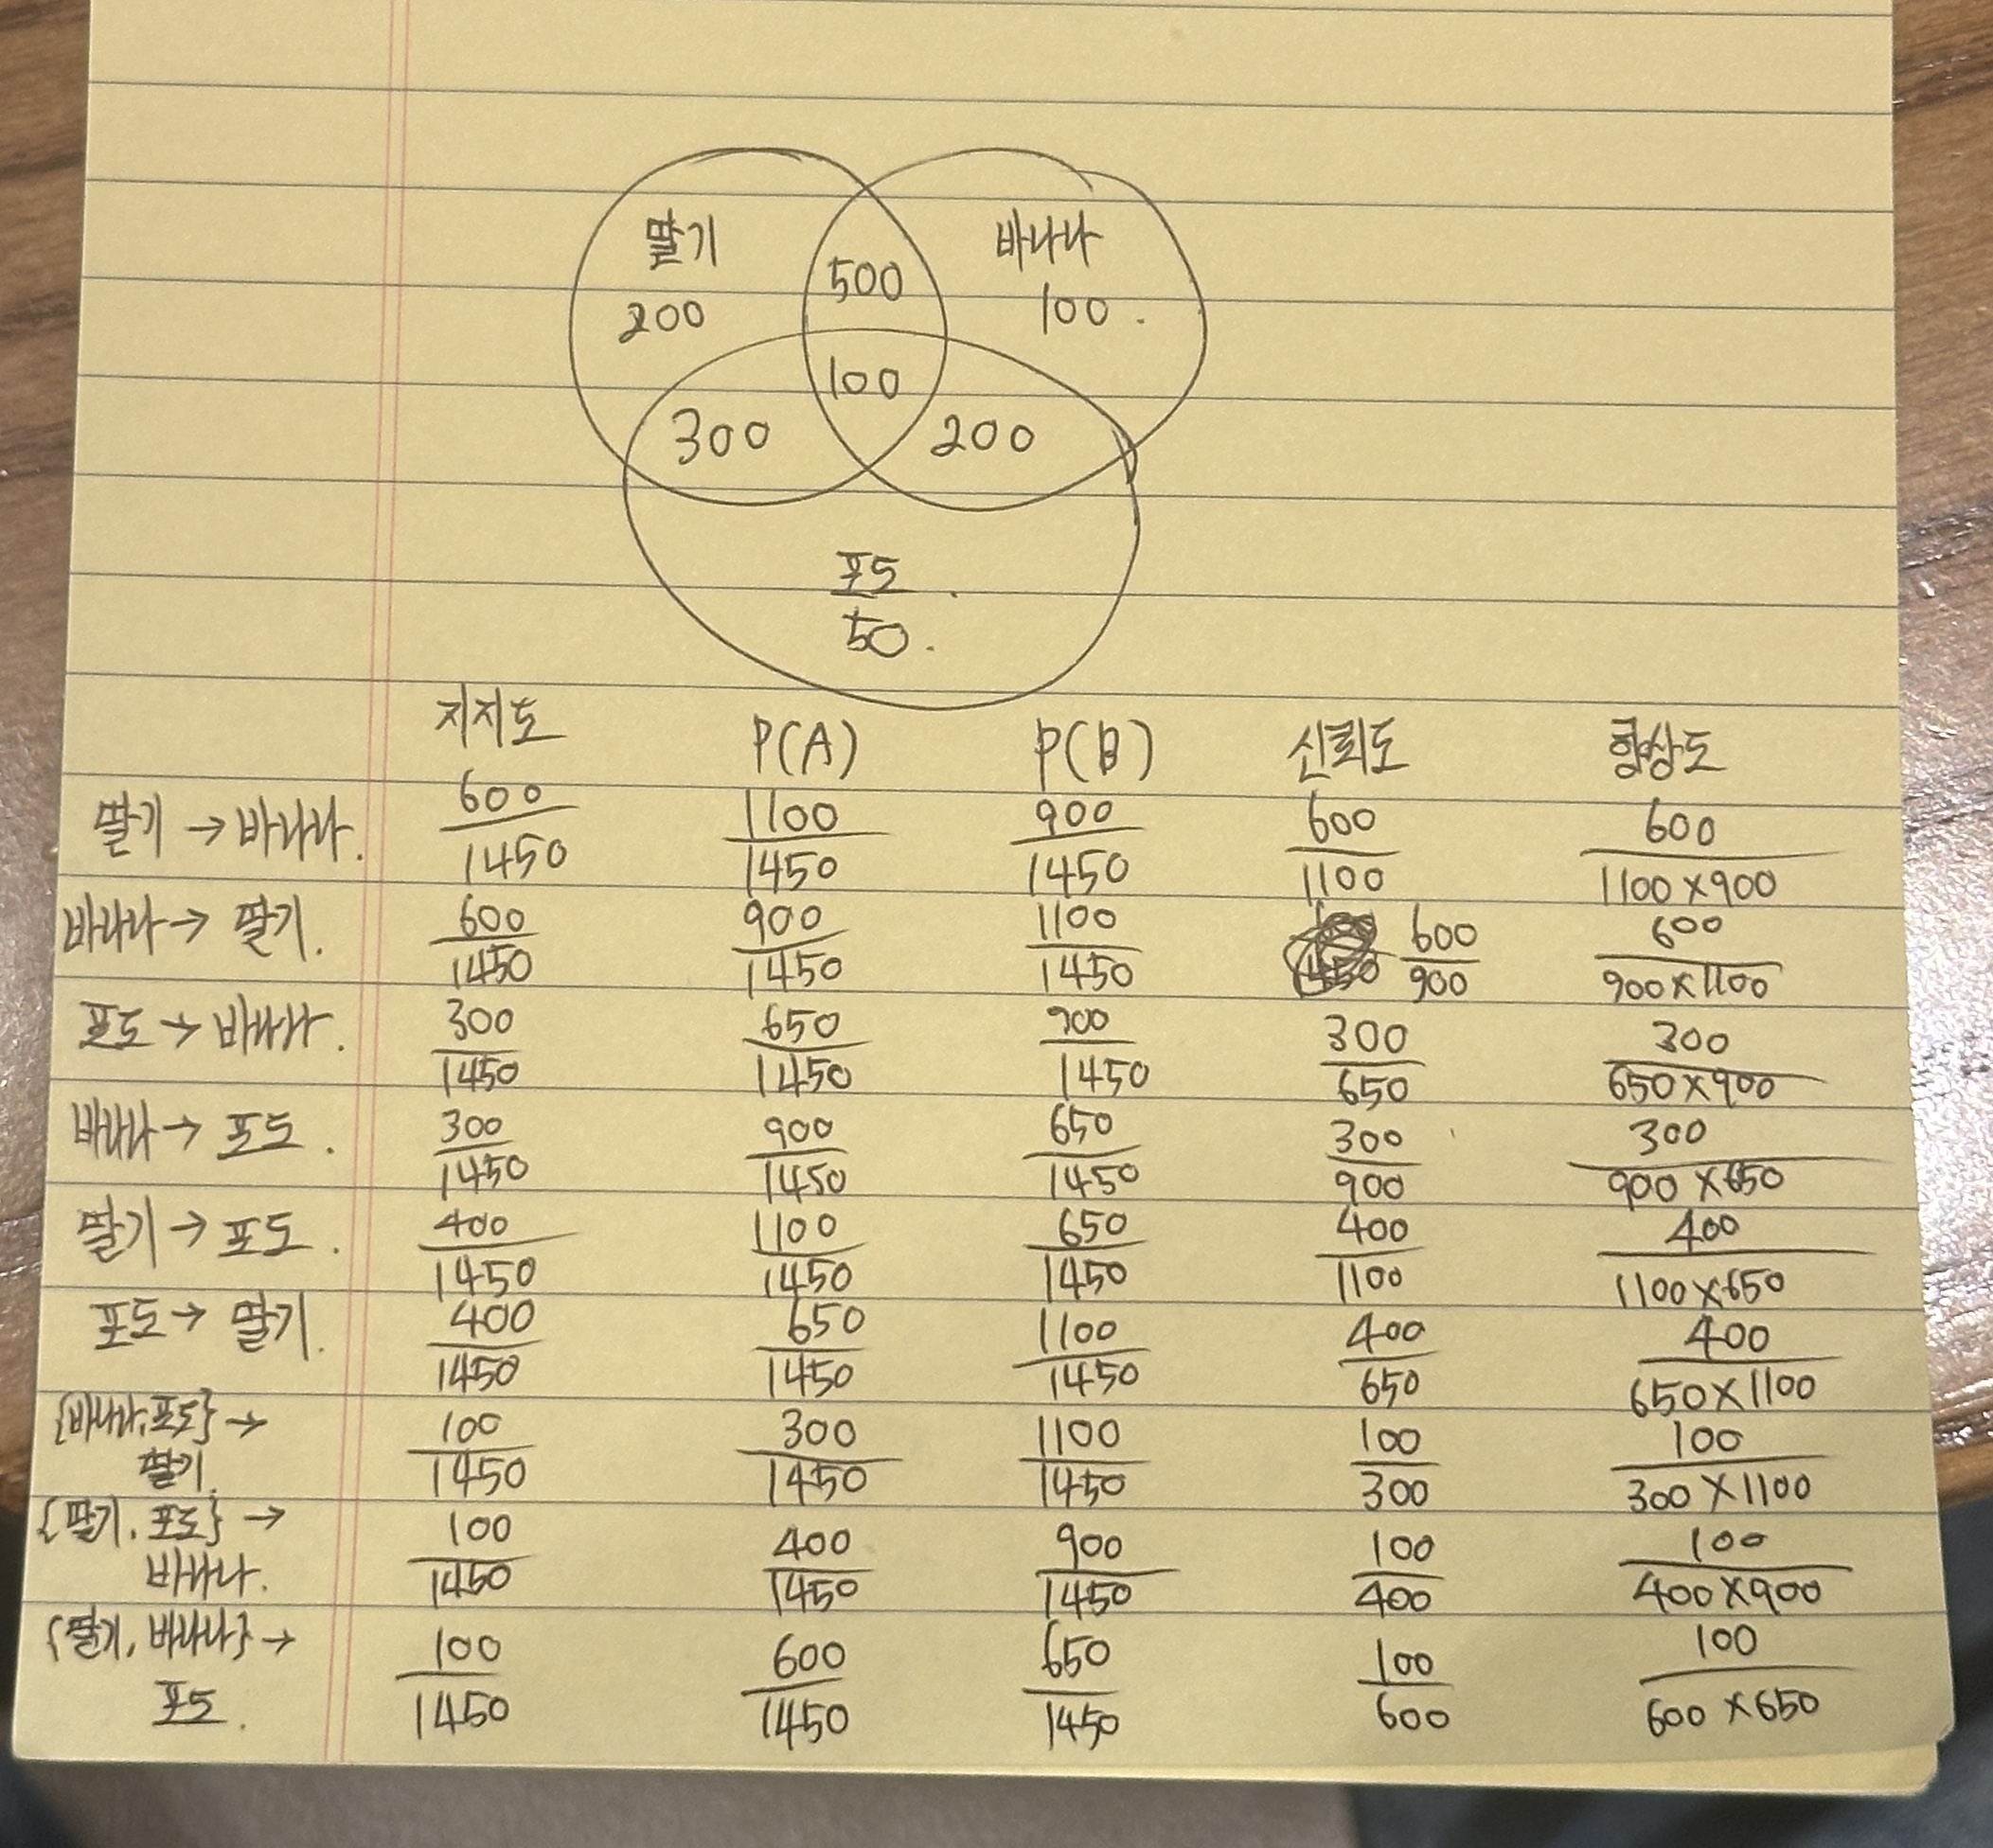 딸기 바나나
200 500 100 .
100
300 200
포도 .
50 .
지지도 P(A) P(B) 신뢰도 향상도
딸기 → 바나나. 600/1450 1100/1450 900/1450 600/1100 600/1100×900
바나나 → 딸기. 600/1450 900/1450 1100/1450 600/900 600/900×1100
포도 → 바나나. 300/1450 650/1450 900/1450 300/650 300/650×900
바나나 → 포도. 300/1450 900/1450 650/1450 300/900 300/900×650
딸기 → 포도. 400/1450 1100/1450 650/1450 400/1100 400/1100×650
포도 → 딸기. 400/1450 650/1450 1100/1450 400/650 400/650×1100
{바나나, 포도} →
딸기. 100/1450 300/1450 1100/1450 100/300 100/300×1100
{딸기, 포도} →
바나나. 100/1450 400/1450 900/1450 100/400 100/400×900
{딸기, 바나나} →
포도. 100/1450 600/1450 650/1450 100/600 100/600×650